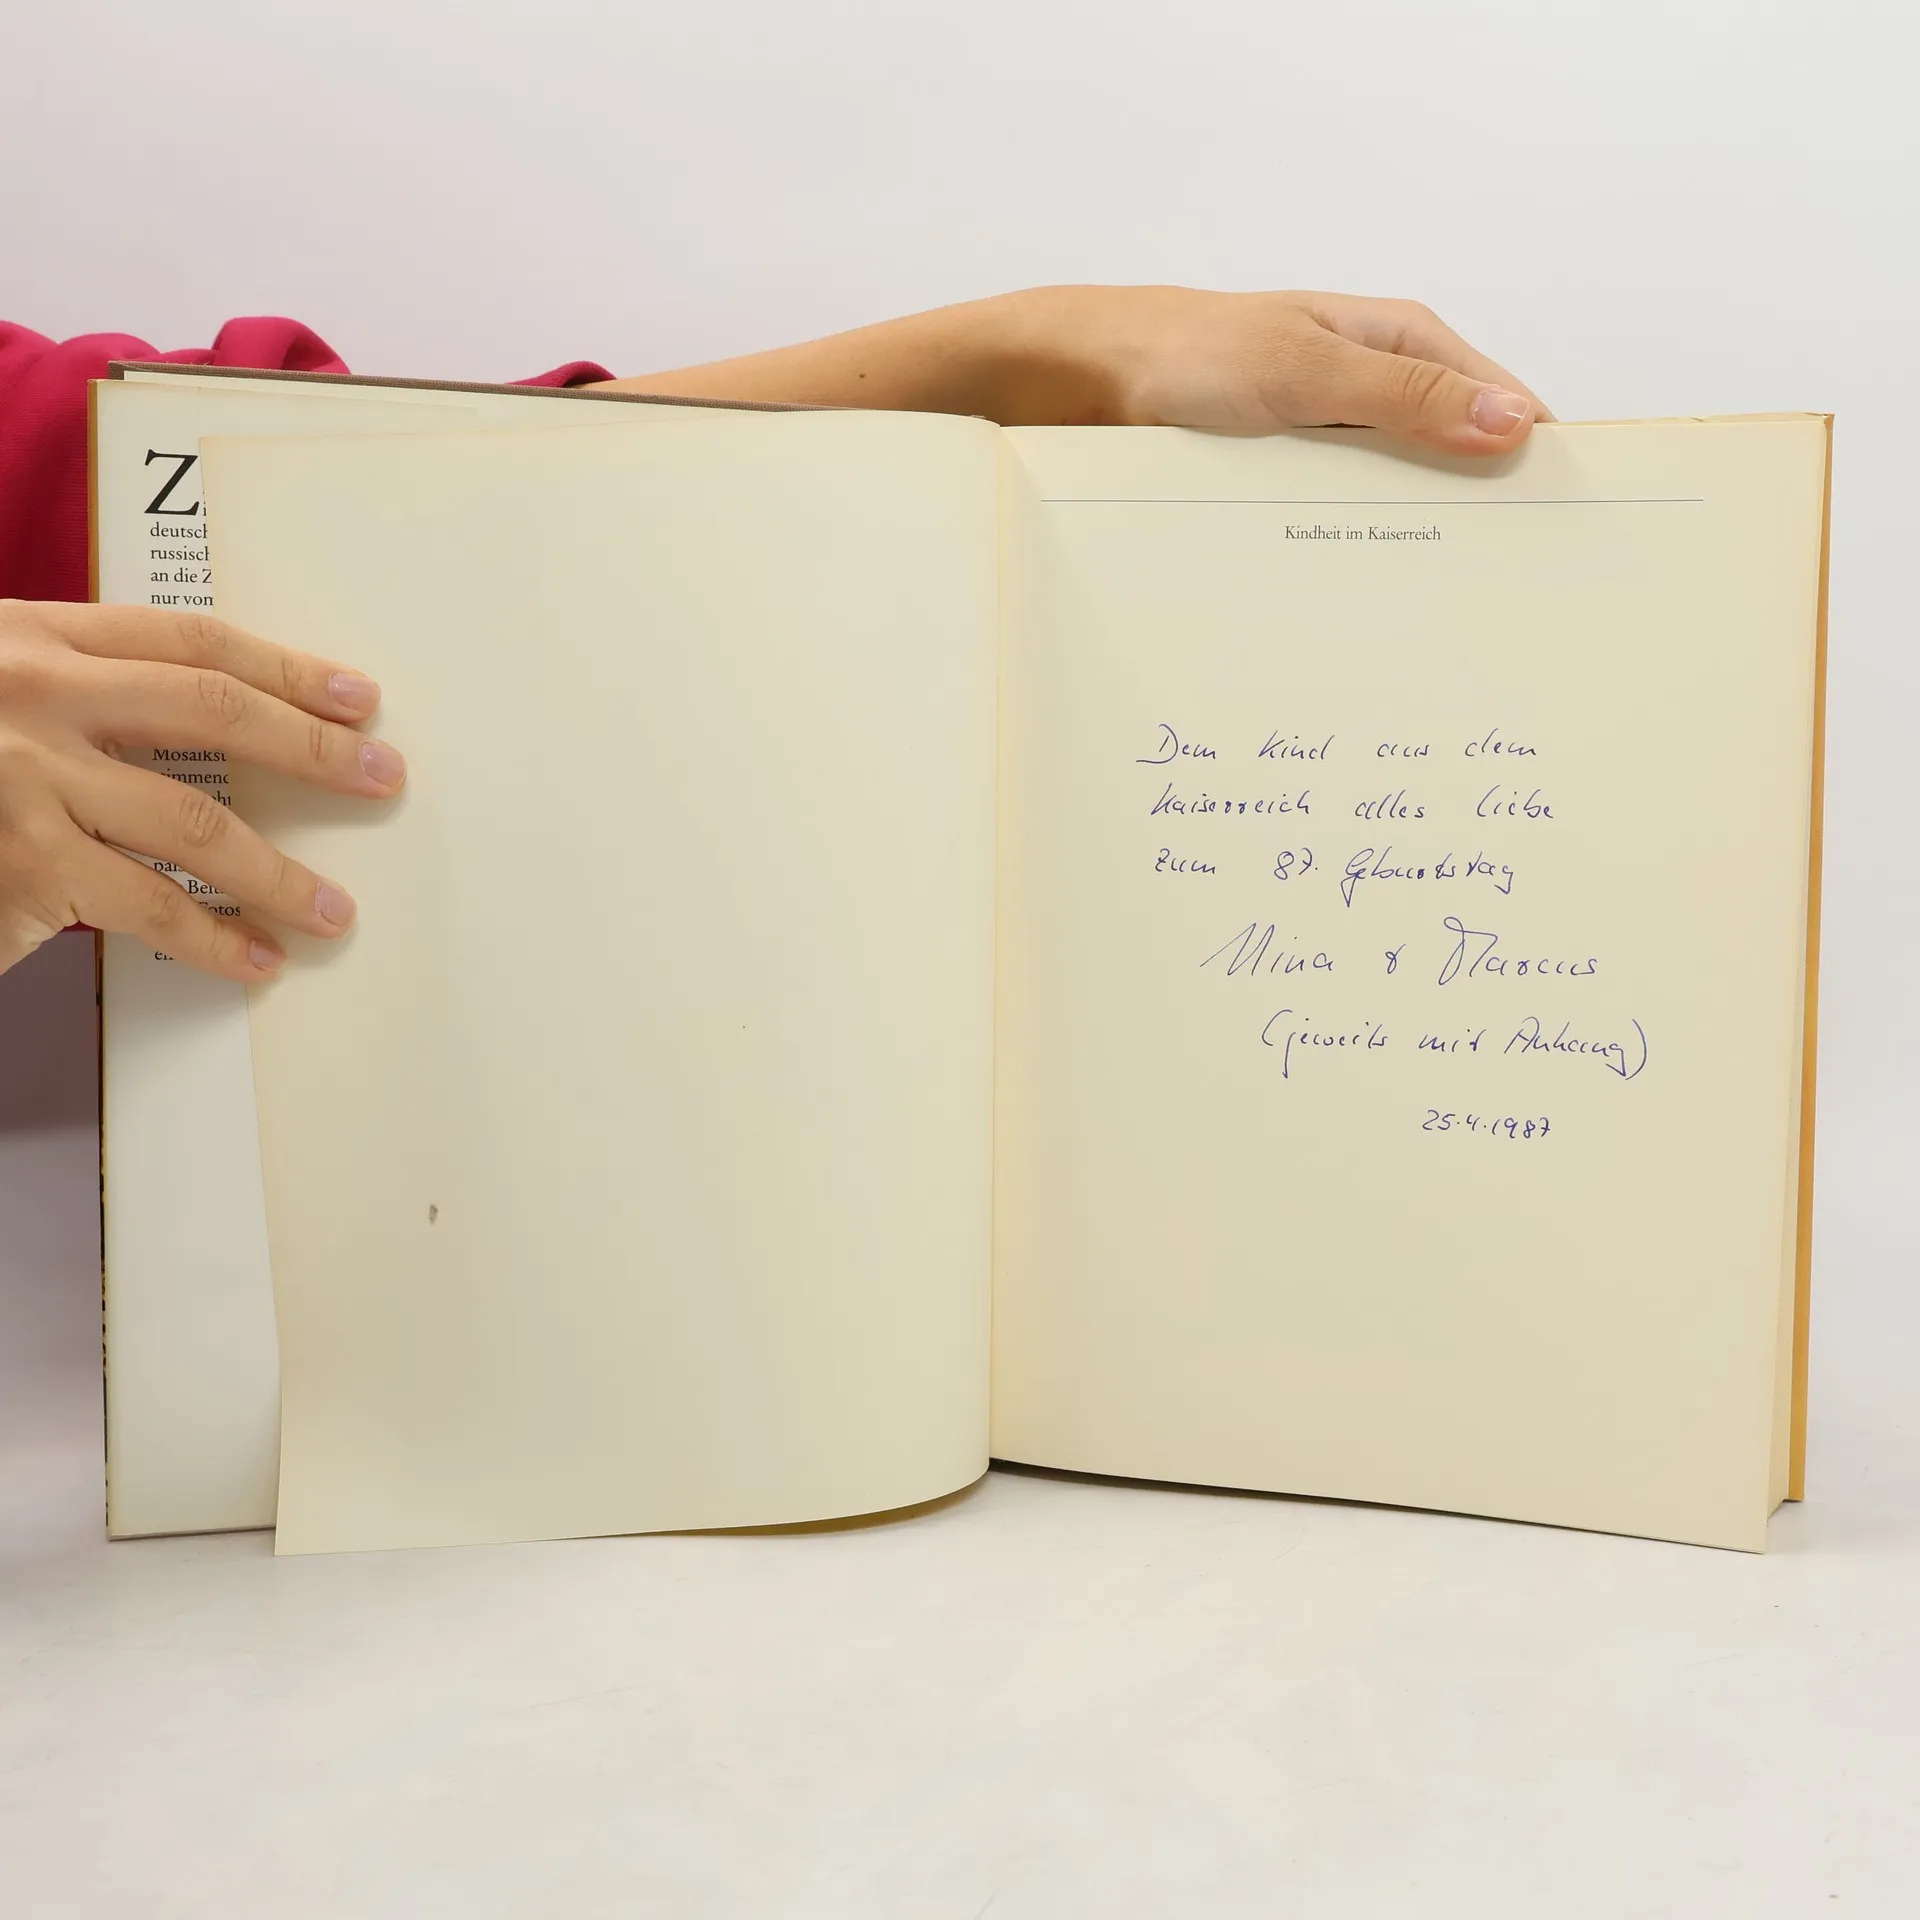 Z
deutsch
russisch
an die Z
nur vom
Mosaikst
Beit
Fotos
Kindheit im Kaiserreich
Dem Kind aus dem
Kaiserreich alles Liebe
zum 87. Geburtstag
Nina & Marcus
(jeweils mit Anhang)
25.4.1987